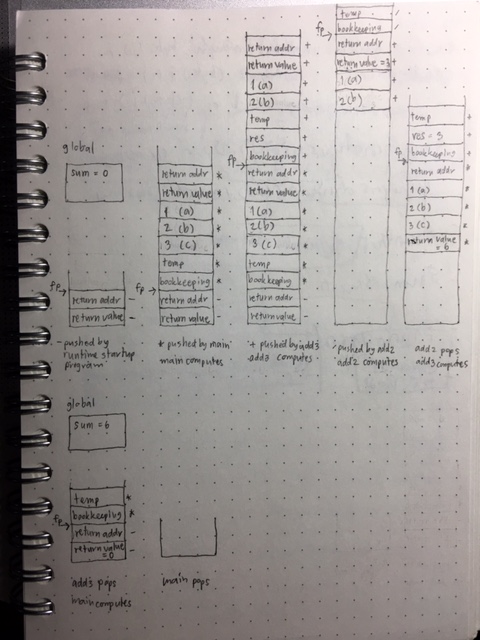 global
sum = 0
fp
return addr -
return value -
- pushed by
runtime startup
program
return addr *
return value *
1 (a) *
2 (b) *
3 (c) *
temp *
fp
bookkeeping *
return addr -
return value -
* pushed by main
main computes
return addr +
return value +
1 (a) +
2 (b) +
temp +
res +
fp
bookkeeping +
return addr *
return value *
1 (a) *
2 (b) *
3 (c) *
temp *
bookkeeping *
return addr -
return value -
+ pushed by add3
add3 computes
temp
fp
bookkeeping
return addr +
return value = 3 +
1 (a) +
2 (b) +
pushed by add2
add2 computes
temp +
res = 3 +
fp
bookkeeping +
return addr *
1 (a) *
2 (b) *
3 (c) *
return value *
= 6
add2 pops
add3 computes
global
sum = 6
temp *
bookkeeping *
fp
return addr -
return value -
= 0
add3 pops
main computes
main pops